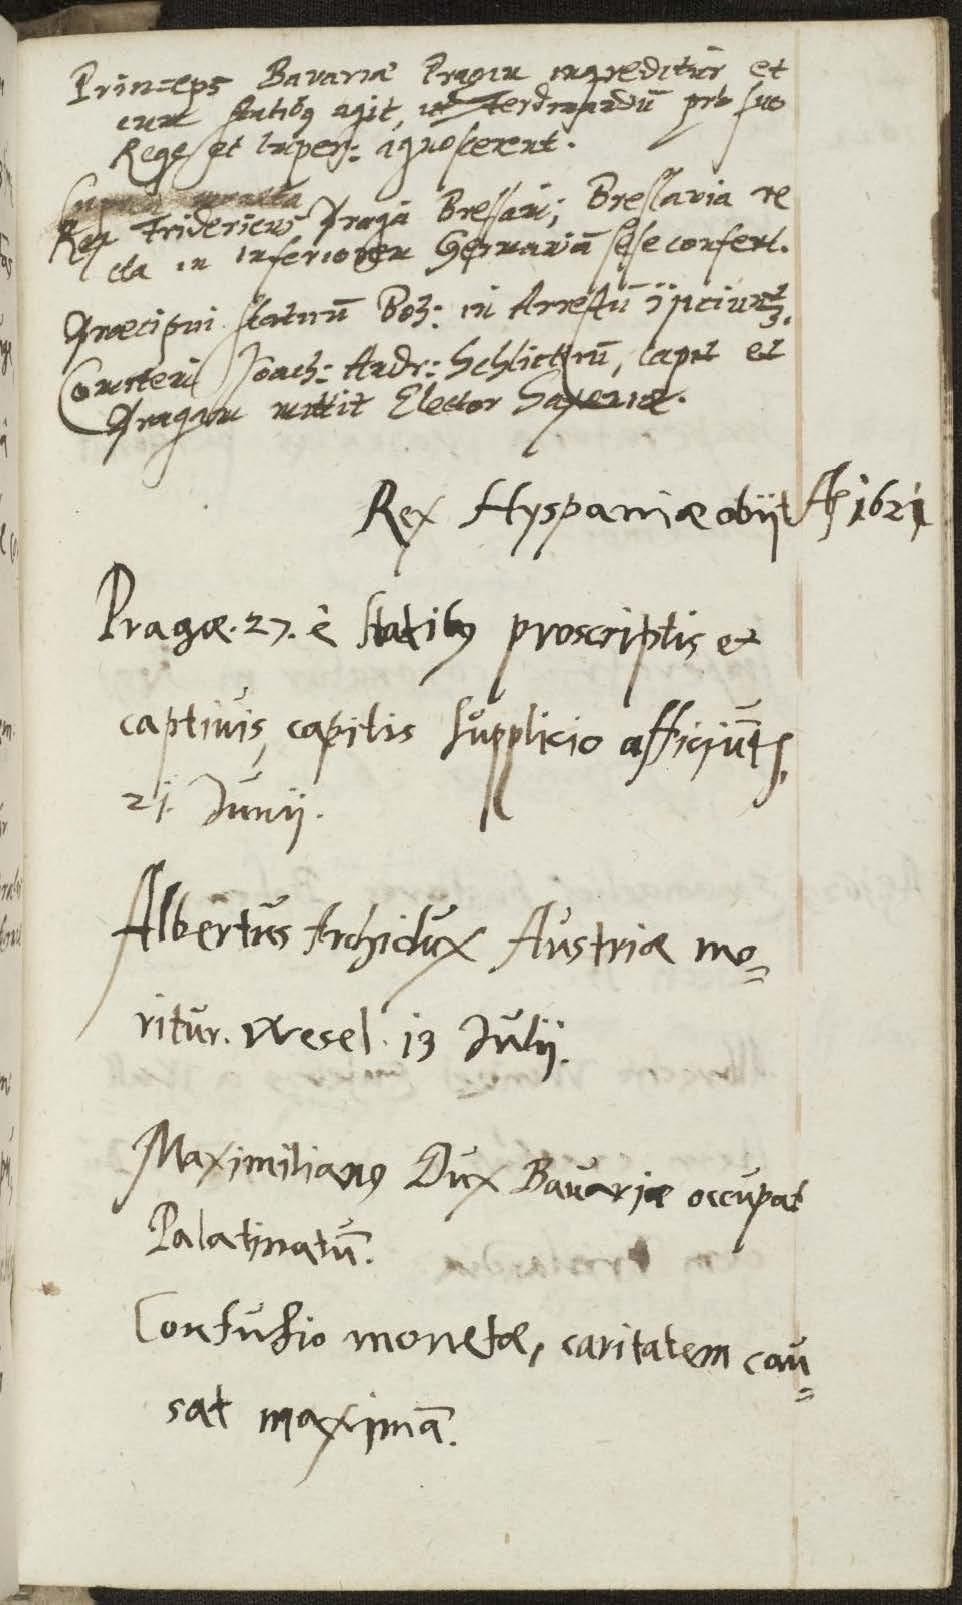 Princeps Bavariæ Pragam ingreditur et
cum Statibꝰ agit, ut Ferdinandū pro suo
Rege et Imper: agnoscerent.
Rex Fridericus Praga Breslam; Breslavia re
cta in inferiorem Germaniā sese confert.
Præcipui Statuū Boh: in Arrestū ijciunt
Comitem Joach: Andr: Schlickiū, capit et
Pragam mittit Elector Saxoniæ.
Rex Hyspaniæ obijt Aº 1621
Pragæ. 27. è Statibꝰ proscriptis et
captivis, capitis supplicio afficiūt
21. Junij.
Albertus Archidux Austriæ mo=
ritur. Wesel. 13 Julij.
Maximilianꝰ Dux Bavariæ occupat
Palatinatū.
Confusio monetæ, caritatem cau=
sat maximā.